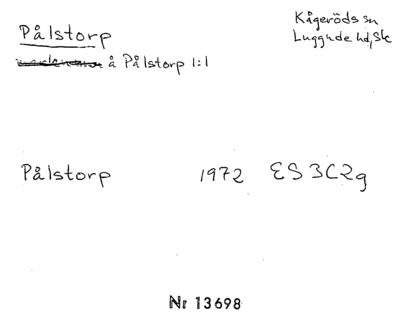 Pålstorp
Kågeröds sn
Luggude hd, Sk
å Pålstorp 1:1
Pålstorp 1972 ES 3C2g
Nr 13698